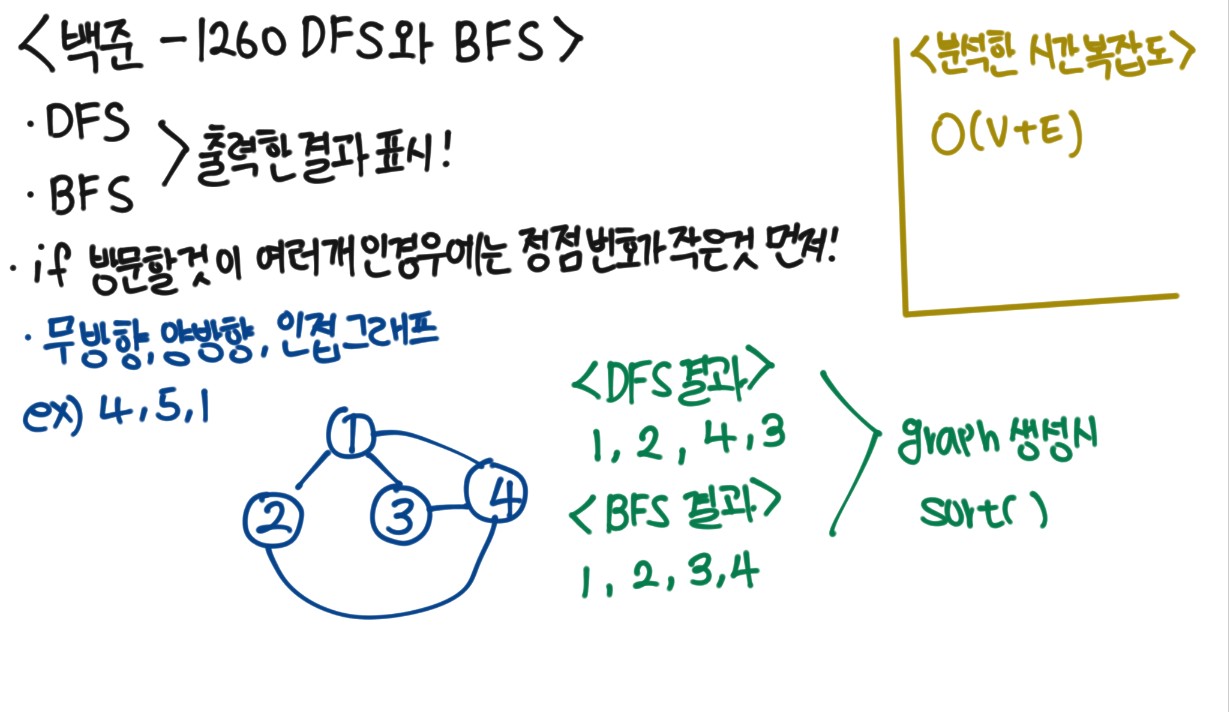 <백준 - 1260 DFS와 BFS>
· DFS
· BFS
> 출력한 결과 표시!
· if 방문할것이 여러개인경우에는 정점번호가 작은것 먼저!
· 무방향, 양방향, 인접그래프
ex) 4, 5, 1
1
2
3
4
<DFS 결과>
1, 2, 4, 3
<BFS 결과>
1, 2, 3, 4
graph 생성시
sort( )
<분석한 시간복잡도>
O(V+E)